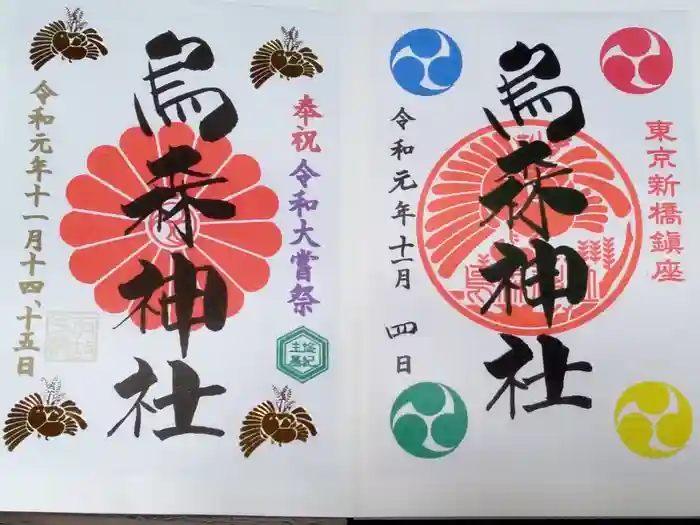 東京新橋鎮座
烏森神社
令和元年十一月 四日
奉祝 令和大嘗祭
烏森神社
令和元年十一月十四、十五日